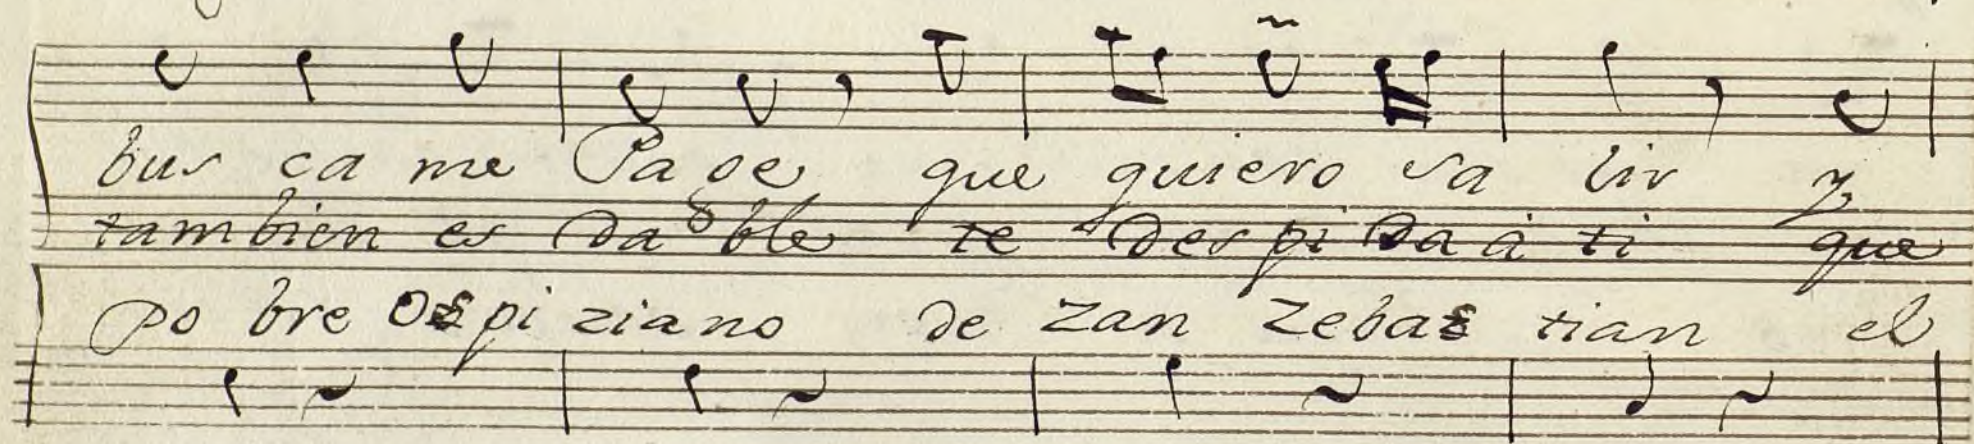 bus ca me Pa je que quiero sa lir y
tambien es da ble te des pi da à ti que
po bre Os pi ziano de zan zebas tian el